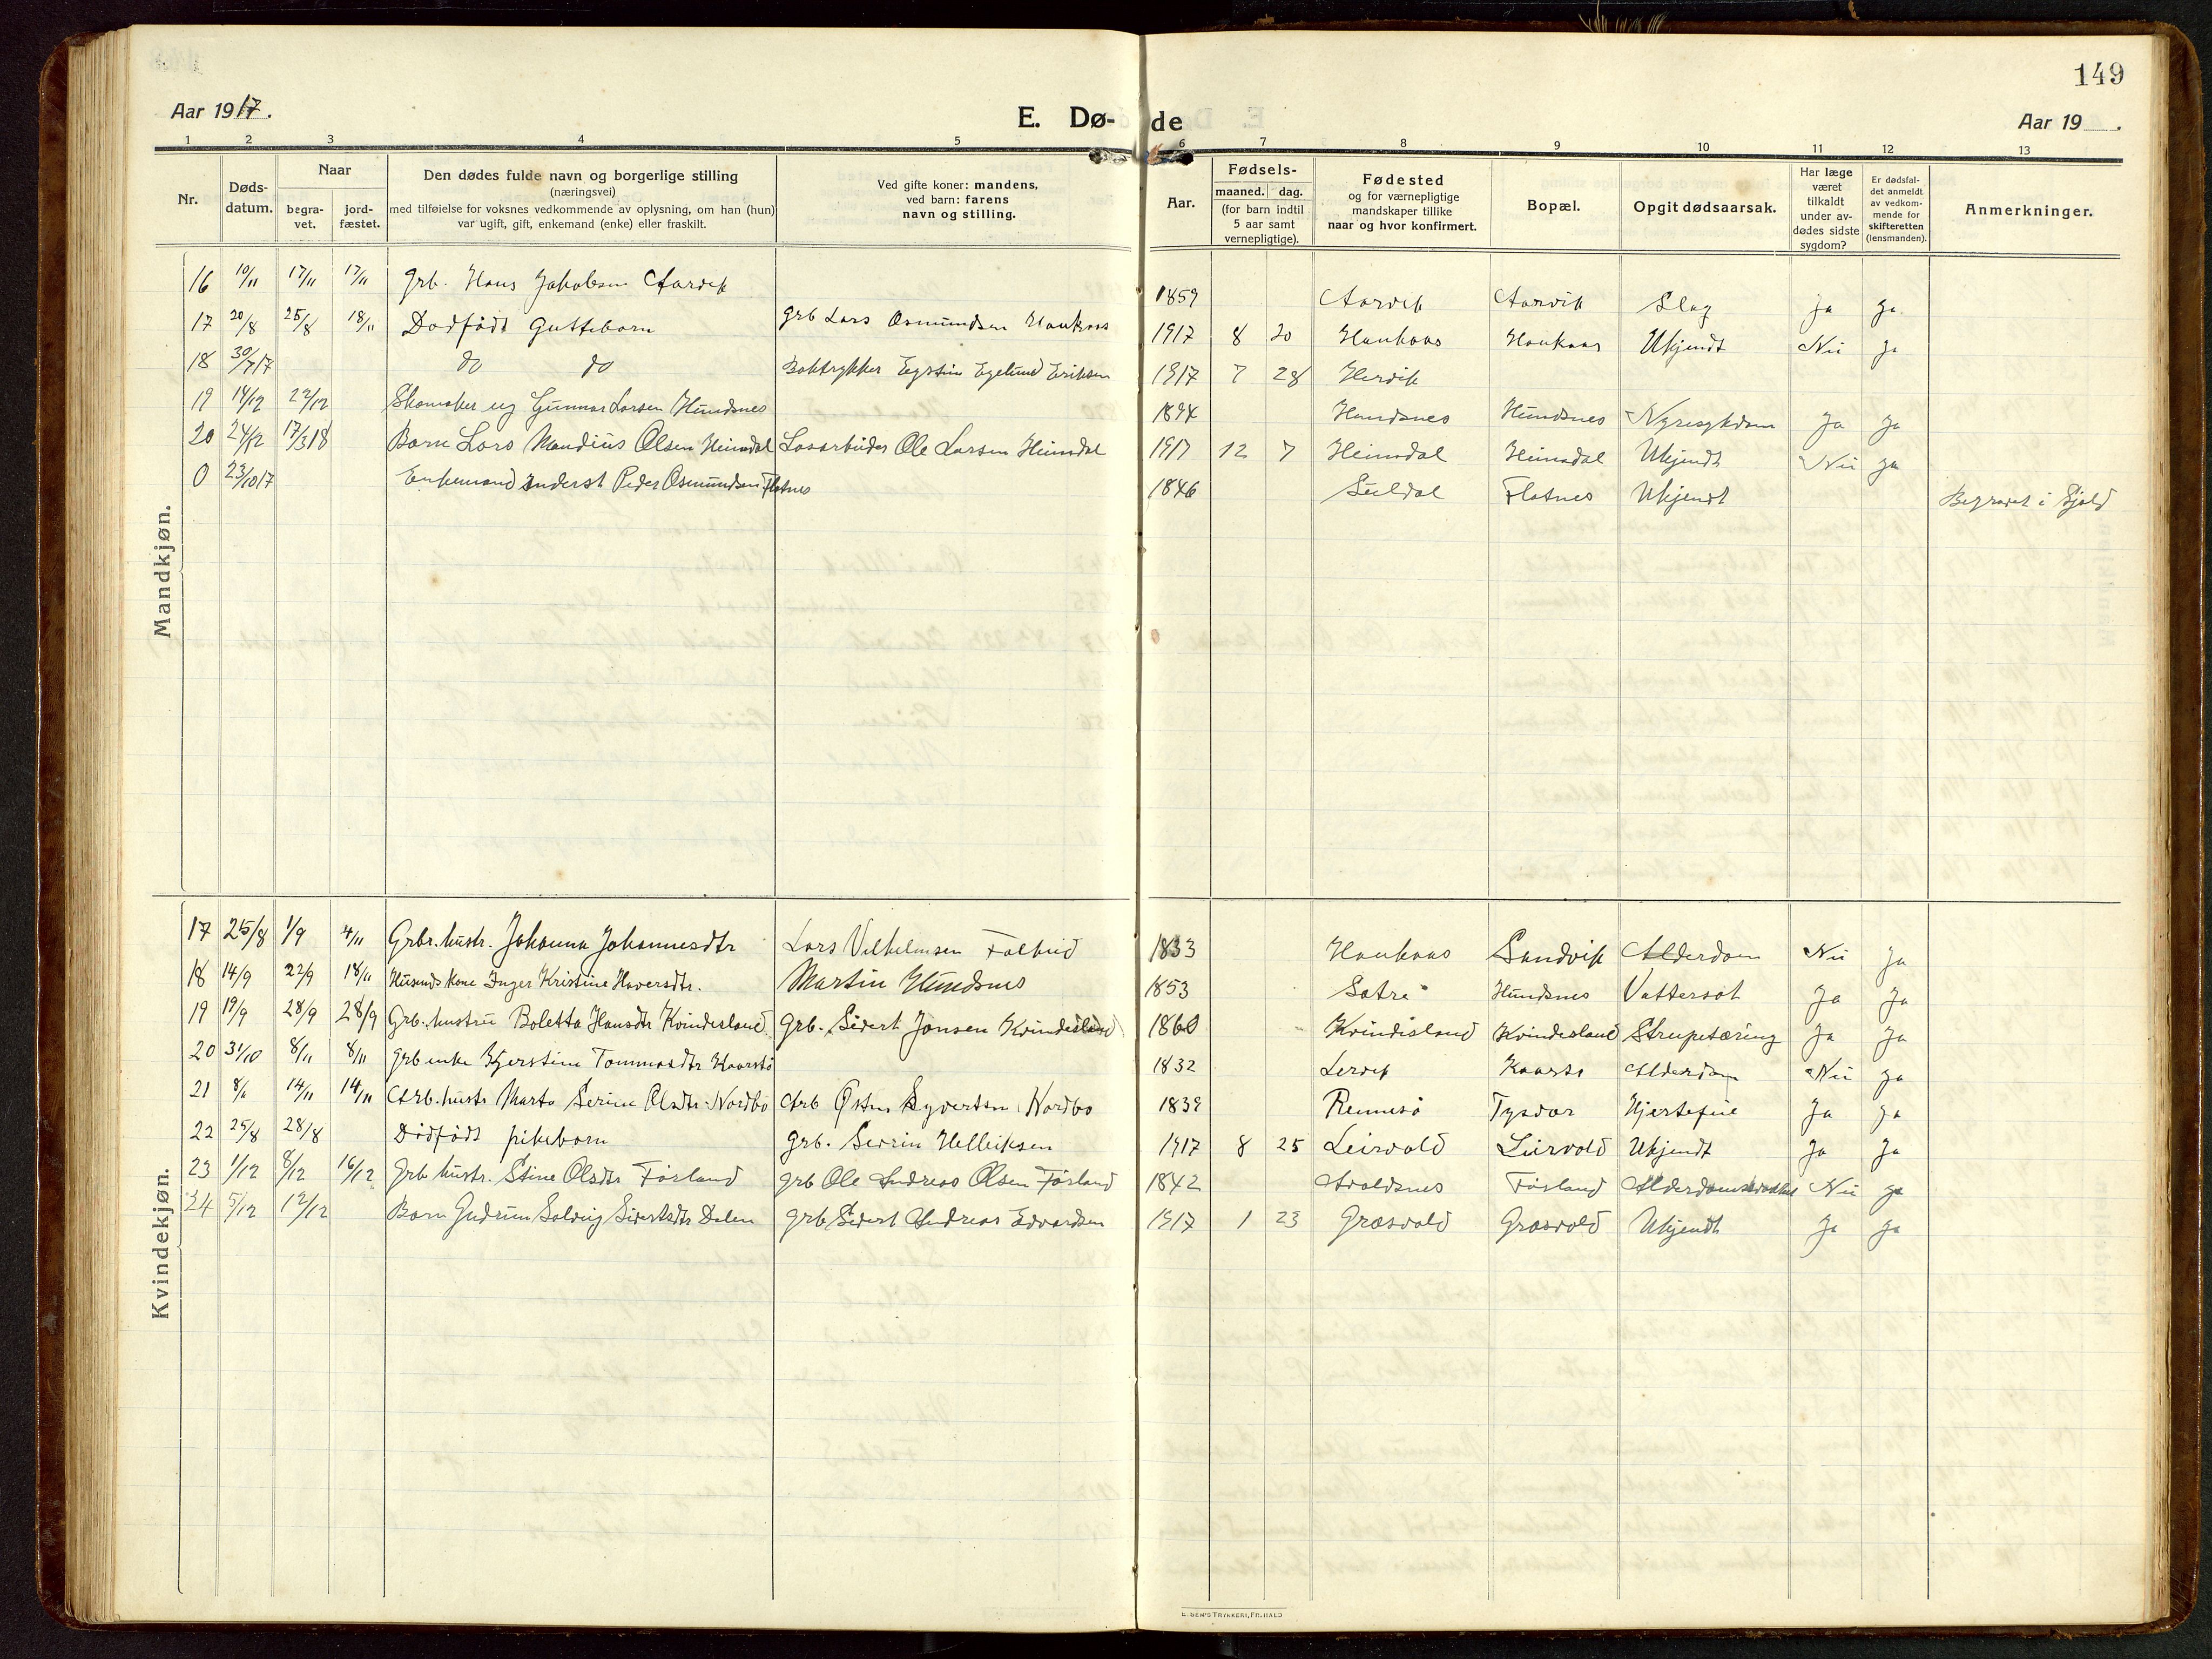 149
Aar 1917.
E. Dø-de
Aar 19 .
1 2 3 4 5 6 7 8 9 10 11 12 13
Nr.
Døds-
datum.
Naar
begra-
vet.
jord-
fæstet.
Den dødes fulde navn og borgerlige stilling
(næringsvei)
med tilføielse for voksnes vedkommende av oplysning, om han (hun)
var ugift, gift, enkemand (enke) eller fraskilt.
Ved gifte koner: mandens,
ved barn: farens
navn og stilling.
Aar.
Fødsels-
maaned. dag.
(for barn indtil
5 aar samt
vernepligtige).
Fødested
og for værnepligtige
mandskaper tillike
naar og hvor konfirmert.
Bopæl.
Opgit dødsaarsak.
Har læge
været
tilkaldt
under av-
dødes sidste
sygdom?
Er dødsfal-
det anmeldt
av vedkom-
mende for
skifteretten
(lensmanden).
Anmerkninger.
Mandkjøn.
16 10/11 17/11 17/11 Grb. Hans Jakobsen Aarvik 1859 Aarvik Aarvik Slag Ja Ja
17 20/8 25/8 18/11 Dødfødt Guttebarn Grb Lars Osmundsen Haukaas 1917 8 20 Haukaas Haukaas Ukjendt Nei Ja
18 30/7 17 do do Boktrykker Egelund Eriksen 1917 7 28 Hervik
19 14/12 22/12 Skomaker ug Gunnar Larsen Hundsnes 1894 Hundsnes Hundsnes Nyresykdom Ja Ja
20 24/12 17/3 18 Barn Lars Mandius Olsen Heimdal Løsarbeider Ole Larsen Heimdal 1917 12 7 Heimdal Heimdal Ukjendt Nei Ja
0 23/10 17 Enkemand inderst Peder Osmundsen Flatnes 1846 Suldal Flatnes Ukjendt Begravet i Skjold
Kvindekjøn.
17 25/8 1/9 4/11 Grbr. hustr. Johanna Johannesdtr Lars Vilhelmsen 1833 Haukaas Sandvik Alderdom Nei Ja
18 14/9 22/9 18/11 Husmds kone Inger Kristine Haversdtr. Martin Hundsnes 1853 Satre Hundsnes Vattersot Ja Ja
19 19/9 28/9 28/9 Grb. hustru Boletta Hansdtr Kvindesland Grb. Sivert Jonsen Kvindesland 1860 Kvindisland Kvindesland Strupetæring Ja Ja
20 31/10 8/11 8/11 Grb enke Kjerstina Tommasdtr Kaarstø 1832 Lervik Kaarstø Alderdom Nei Ja
21 14/11 14/11 Grb. hustr Marta Serine Olsdtr Nordbø Grb Østen Syvertsen Nordbø 1839 Rennesø Tysvær Hjertefeil Ja Ja
22 25/8 28/8 Dødfødt pikebarn Grb. Severin Helliksen 1917 8 25 Leirvold Leirvold Ukjendt Ja Ja
23 1/12 8/12 16/12 Grb hustr. Stine Olsdtr Førland Grb Ole Andreas Olsen Førland 1842 Avaldsnes Førland Nei Ja
24 5/12 12/12 Barn Gudrun Solveig Sivertsdtr Dalen Grb Sivert Andreas Edvardsen 1917 1 23 Grasvold Grasvold Ukjendt Ja Ja